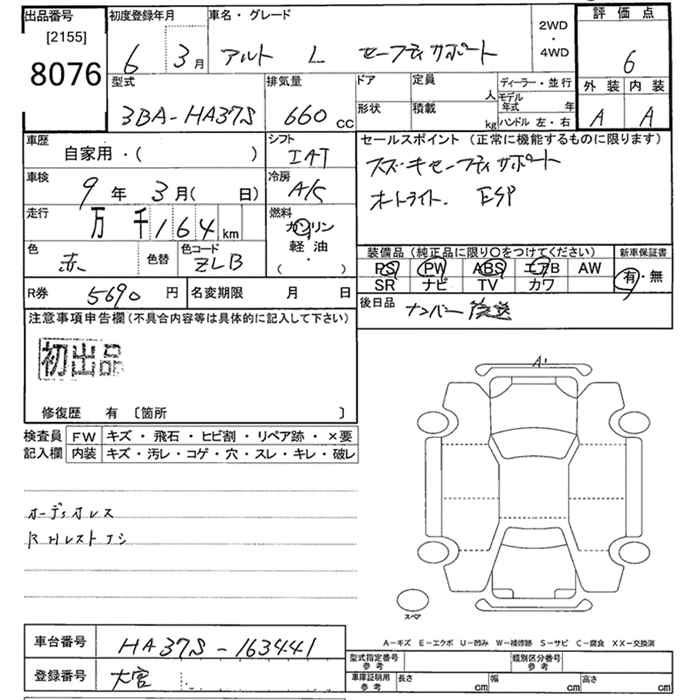 出品番号 [2155] 8076
初度登録年月 6 3月
車名・グレード アルト L セーフティサポート
2WD・4WD
評価点 6
外装 A 内装 A
型式 3BA-HA37S
排気量 660 CC
ドア 形状
定員 人
積載 kg
ディーラー・並行
モデル年式 年
ハンドル 左・右
車歴 自家用・( )
シフト IAT
車検 9年 3月( 日)
冷房 A/C
走行 万千164km
燃料 ガソリン 軽油・( )
色 赤 色替
色コード ZLB
R券 5690円
名変期限 月 日
セールスポイント (正常に機能するものに限ります)
スズキセーフティサポート
オートライト. ESP
装備品(純正品に限り○をつけてください)
PS PW ABS エアB AW
SR ナビ TV カワ
新車保証書 有・無
後日品 ナンバー後送
注意事項申告欄(不具合内容等は具体的に記入して下さい)
初出品
修復歴 有 〔箇所 〕
検査員記入欄
FW キズ・飛石・ヒビ割・リペア跡・×要
内装 キズ・汚レ・コゲ・穴・スレ・キレ・破レ
オーディオレス
R Hレストナシ
A1
スペア
A-キズ E-エクボ U-凹み W-補修跡 S-サビ C-腐食 XX-交換済
車台番号 HA37S-163441
登録番号 大宮
型式指定番号参考
類別区分番号参考
車庫証明用参考 長さ cm 幅 cm 高さ cm